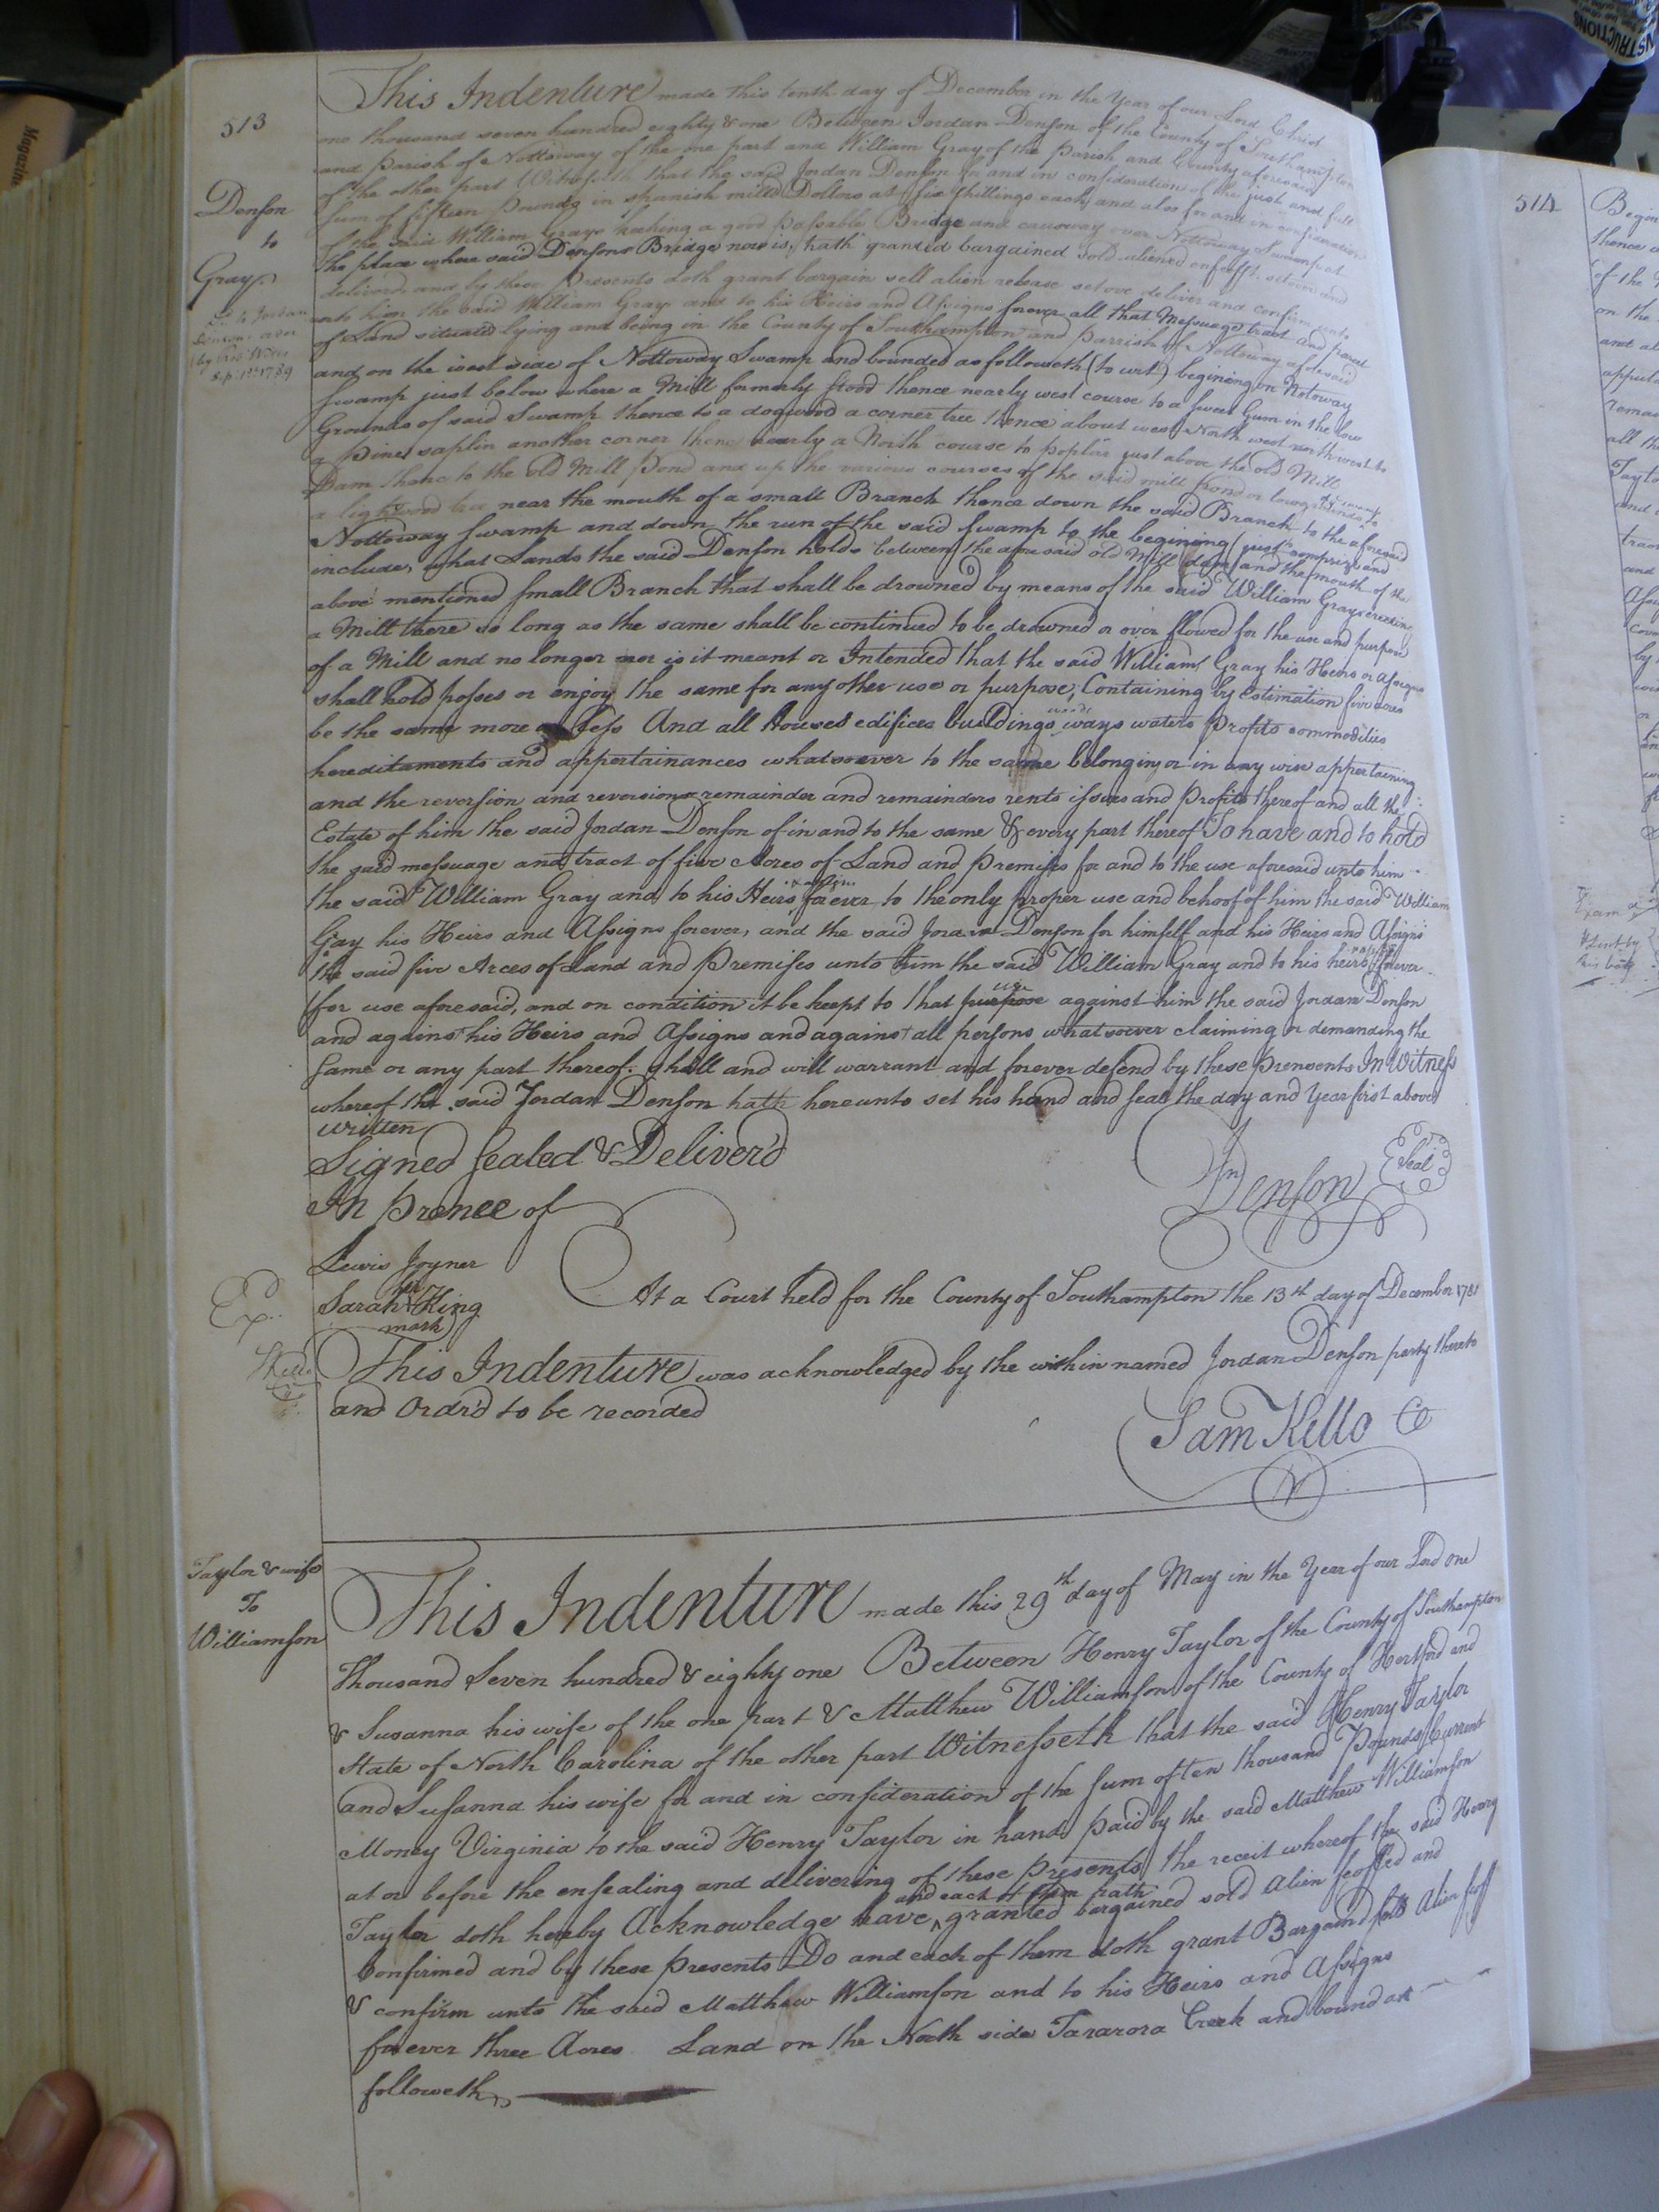 513
Denson
to
Gray
This Indenture made this tenth day of December in the Year of our Lord Christ
one thousand seven hundred eighty & one Between Jordan Denson of the County of Southampton
and Parish of Nottoway of the one part and William Gray of the Parish and County aforesaid
of the other part Witnesseth that the said Jordan Denson for and in consideration of the just and full
sum of fifteen Pounds in spanish mill'd Dollors at six shillings each, and also for and in consideration
of the said William Grays making a good passable Bridge and causway over Nottoway Swamp at
the place where said Densons Bridge now is, hath granted bargained sold aliened enfeoff'd setover and
deliverd and by these Presents doth grant bargain sell alien release setove deliver and confirm unto
unto him the said William Gray and to his Heirs and Assigns forever all that Messuage tract and parcel
of Land situated lying and being in the County of Southampton and Parrish of Nottoway aforesaid
and on the west side of Nottoway Swamp and bounded as followeth (to wit) begining on Notoway
Swamp just below where a Mill formerly stood thence nearly west course to a sweet Gum in the low
Grounds of said Swamp thence to a dogwood a corner tree thence about west North west north west to
a pine saplin another corner thence nearly a North course to poplar just above the old Mill
Dam thence to the old Mill Pond and up the various courses of the said mill pond or low grounds to
a lightwood tree near the mouth of a small Branch thence down the said Branch to the aforesaid
Nottoway Swamp and down the run of the said Swamp to the begining just comprise and
include, what Lands the said Denson holds between the afore said old Mill dam and the mouth of the
above mentioned small Branch that shall be drowned by means of the said William Grays erecting
a Mill there so long as the same shall be continued to be drowned or over flowed for the use and purpose
of a Mill and no longer nor is it meant or Intended that the said William Gray his Heirs or Assigns
shall hold posses or enjoy the same for any other use or purpose, Containing by Estimation five acres
be the same more or less And all Houses edifices buildings woods ways waters Profits commodities
hereditaments and appertainances whatsoever to the same belonging or in any wise appertaining
and the reversion and reversions remainder and remainders rents issues and Profits thereof and all the
Estate of him the said Jordan Denson of in and to the same & every part thereof To have and to hold
the said messuage and tract of five Acres of Land and Premises for and to the use aforesaid unto him
the said William Gray and to his Heirs & assigns forever to the only proper use and behoof of him the said William
Gray his Heirs and Assigns forever, and the said Jordan Denson for himself and his Heirs and Assigns
the said five Arces of Land and Premises unto him the said William Gray and to his heirs & assigns forever
for use aforesaid, and on condition it be keept to that use purpose against him the said Jordan Denson
and against his Heirs and Assigns and against all persons whatsoever claiming or demanding the
same or any part thereof. shall and will warrant and forever defend by these Prensents In Witness
whereof the said Jordan Denson hath hereunto set his hand and seal the day and Year first above
written
Signed sealed & Deliver'd
In Prence of
Jn Denson Seal
Lewis Joyner
Sarah her + mark King
At a Court held for the County of Southampton the 13th day of December 1781
Ex.
This Indenture was acknowledged by the within named Jordan Denson party thereto
and Ordr'd to be recorded
Sam Kello
Taylor & wife
To
Williamson
This Indenture made this 29th day of May in the Year of our Lord one
Thousand Seven hundred & eighty one Between Henry Taylor of the County of Southampton
& Susanna his wife of the one part & Matthew Williamson of the County of Hertford and
State of North Carolina of the other part Witnesseth that the said Henry Taylor
and Susanna his wife for and in consideration of the sum of ten thousand Pounds Current
Money Virginia to the said Henry Taylor in hand paid by the said Matthew Williamson
at or before the ensealing and delivering of these presents the receit whereof the said Henry
Taylor doth hereby Acknowledge have and each of them hath granted bargained sold Alien feoffed and
Confirmed and by these presents Do and each of them doth grant Bargaind sell Alien feoff
& confirm unto the said Matthew Williamson and to his Heirs and Assigns
forever three Acres Land on the North side Tararora Creek and bound as
followeth
514